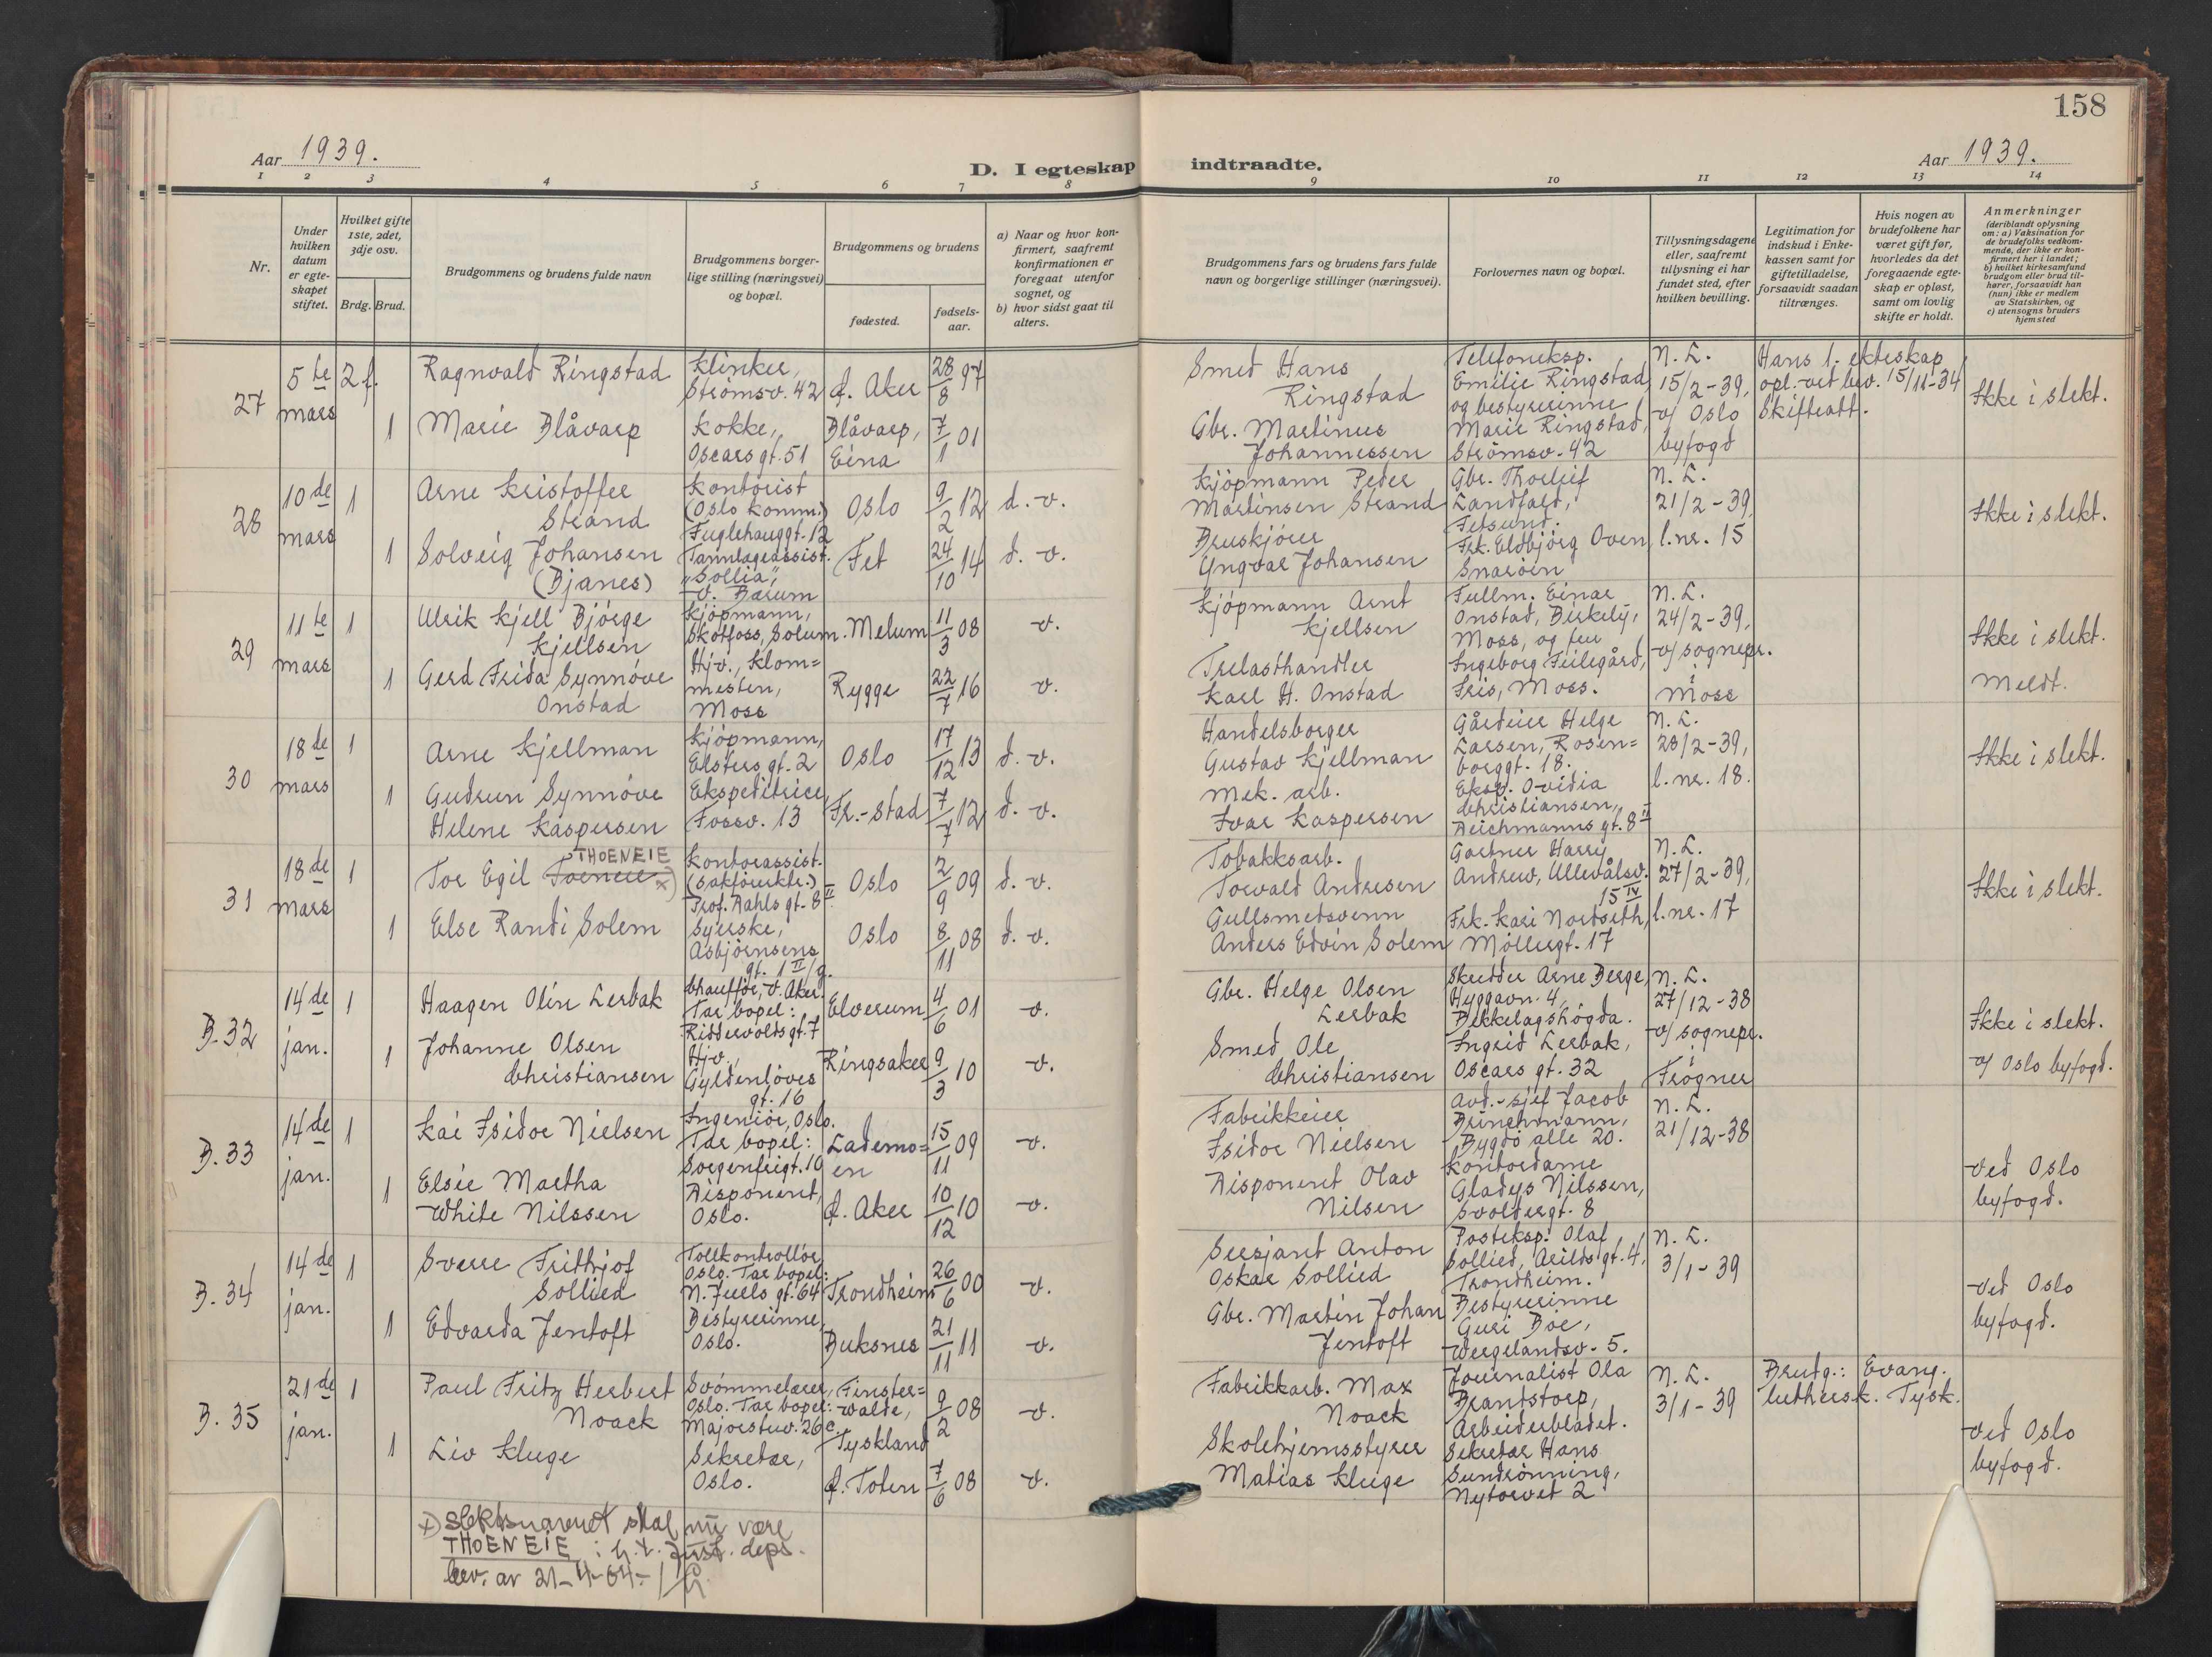 158
Aar 1939.
D. I egteskap indtraadte.
Aar 1939.
1 2 3 4 5 6 7 8 9 10 11 12 13 14
Nr.
Under hvilken datum er egte-skapet stiftet.
Hvilket gifte 1ste, 2det, 3dje osv.
Brdg. Brud.
Brudgommens og brudens fulde navn
Brudgommens borger-
lige stilling (næringsvei)
og bopæl.
Brudgommens og brudens
fødested.
fødsels-
aar.
a) Naar og hvor kon-
firmert, saafremt
konfirmationen er
foregaat utenfor
sognet, og
b) hvor sidst gaat til
alters.
Brudgommens fars og brudens fars fulde
navn og borgerlige stillinger (næringsvei).
Forlovernes navn og bopæl.
Tillysningsdagene
eller, saafremt
tillysning ei har
fundet sted, efter
hvilken bevilling.
Legitimation for
indskud i Enke-
kassen samt for
giftetilladelse,
forsaavidt saadan
tiltrænges.
Hvis nogen av
brudefolkene har
været gift før,
hvorledes da det
foregaaende egte-
skap er opløst,
samt om lovlig
skifte er holdt.
Anmerkninger
(deriblandt oplysning
om: a) Vaksination for
de brudefolks vedkom-
mende, der ikke er kon-
firmert her i landet;
b) hvilket kirkesamfund
brudgom eller brud til-
hører, forsaavidt han
(hun) ikke er medlem
av Statskirken, og
c) utensogns bruders
hjemsted
27
5te mars
2 f.
Ragnvald Ringstad
Klinker,
Strømsv. 42
Ø. Aker
28/8 97
Smed Hans
Ringstad
Telefoneksp.
Emilie Ringstad
og bestyrerinne
Marie Ringstad,
Strømsv. 42
N. L.
15/2-39,
v/ Oslo
byfogd
Hans 1. ekteskap
opl. ved bev. 15/11-34
Skifteatt.
Ikke i slekt.
1
Marie Blåvarp
Kokke,
Oscars gt. 51
Blåvarp,
Eina
7/1 01
Gbr. Martinus
Johannessen
28
10de mars
1
Arne Kristoffer
Strand
Kontorist
(Oslo komm.)
Fuglehauggt. 12
Oslo
9/2 12
d. v.
Kjøpmann Peder
Martinsen Strand
Gbr. Thorleif
Landfald,
Fetsund.
Frk. Eldbjørg Oven
Snarøen
N. L.
21/2-39,
l. nr. 15
Ikke i slekt.
1
Solveig Johansen
(Bjanes)
Tannlegeassist.
"Sollia",
V. Bærum
Fet
24/10 14
d. v.
Bruskjører
Yngvar Johansen
29
11te mars
1
Ulrik Kjell Bjørge
Kjellsen
Kjøpmann,
Skotfoss, Solum.
Melum
11/3 08
v.
Kjøpmann Arnt
Kjellsen
Fullm. Einar
Onstad, Birkely,
Moss, og fru
Ingeborg Feilegård,
Iris, Moss.
N. L.
24/2-39,
v/ sognepr.
i
Moss
Ikke i slekt.
Meldt.
1
Gerd Frida Synnøve
Onstad
Hjv., Klom=
mesten,
Moss
Rygge
22/7 16
v.
Trelasthandler
Karl H. Onstad
30
18de mars
1
Arne Kjellman
Kjøpmann,
Elsters gt. 2
Oslo
17/12 13
d. v.
Handelsborger
Gustav Kjellman
Gårdeier Helge
Larsen, Rosen=
borggt. 18.
Eksp. Ovidia
Christiansen,
Deichmanns gt. 8 II
N. L.
28/2-39,
l. nr. 18.
Ikke i slekt.
1
Gudrun Synnøve
Helene Kaspersen
Ekspeditrice,
Fossv. 13
Fr.-stad
7/7 12
d. v.
Mek. arb.
Ivar Kaspersen
31
18de mars
1
THOENEIE
Tor Egil Toeneie x)
Kontorassist.
(Sakførerktr.)
Prof. Dahls gt. 8 II
Oslo
2/9 09
d. v.
Tobakksarb.
Torvald Andresen
Gartner Harry
Andrew, Ullevålsv.
15 IV
Frk. Kari Nordseth,
Møllergt. 17
N. L.
27/2-39,
l. nr. 17
Ikke i slekt.
1
Else Randi Solem
Syerske,
Asbjørnsens
gt. 1 II/g.
Oslo
8/11 08
d. v.
Gullsmedsvenn
Anders Edvin Solem
B. 32
14de jan.
1
Haagen Olin Lerbak
Chauffør, V. Aker.
Tar bopel:
Riddervolds gt. 7
Elverum
4/6 01
v.
Gbr. Helge Olsen
Lerbak
Skredder Arne Berge,
Hyggavn. 4,
Bekkelagshøgda.
Ingrid Lerbak,
Oscars gt. 32
N. L.
27/12-38
v/ sognepr.
i
Frogner
Ikke i slekt.
v/ Oslo byfogd.
1
Johanne Olsen
Christiansen
Hjv.,
Gyldenløves
gt. 16
Ringsaker
9/3 10
v.
Smed Ole
Christiansen
B. 33
14de jan.
1
Kai Isidor Nielsen
Ingeniør, Oslo.
Tar bopel:
Sorgenfrigt. 10
Lademo=
en
15/11 09
v.
Fabrikkeier
Isidor Nielsen
Avd.-sjef Jacob
Brinchmann,
Bygdø alle 20.
Kontordame
Gladys Nilssen,
Svoldergt. 8
N. L.
21/12-38
ved Oslo
byfogd.
1
Elsie Martha
White Nilssen
Disponent,
Oslo.
Ø. Aker
10/12 10
v.
Disponent Olav
Nilsen
B. 34
14de jan.
1
Sverre Frithjof
Sollied
Tollkontrollør
Oslo. Tar bopel:
N. Juels gt. 64
Trondheim
26/6 00
v.
Sersjant Anton
Oskar Sollied
Posteksp. Olaf
Sollied, Arilds gt. 4,
Trondheim.
Bestyrerinne
Guri Boe,
Wergelandsv. 5.
N. L.
3/1-39
ved Oslo
byfogd.
1
Edvarda Jentoft
Bestyrerinne,
Oslo.
Buksnes
21/11 11
v.
Gbr. Martin Johan
Jentoft
B. 35
21de jan.
1
Paul Fritz Herbert
Noack
Svømmelærer,
Oslo. Tar bopel:
Majorstuv. 26 c.
Finster=
walde,
Tyskland
9/2 08
v.
Fabrikkarb. Max
Noack
Journalist Ola
Brandstorp,
Arbeiderbladet.
Sekretær Hans
Sundrønning,
Nytorvet 2
N. L.
3/1-39
Brudg.: Evang.
luthersk. Tysk.
ved Oslo
byfogd.
1
Liv Kluge
Sekretær,
Oslo.
Ø. Toten
7/6 08
v.
Skolehjemsstyrer
Matias Kluge
x) slektsnavnet skal nu være
THOENEIE i h. t. Just. deps.
bev. av 21-4-64.